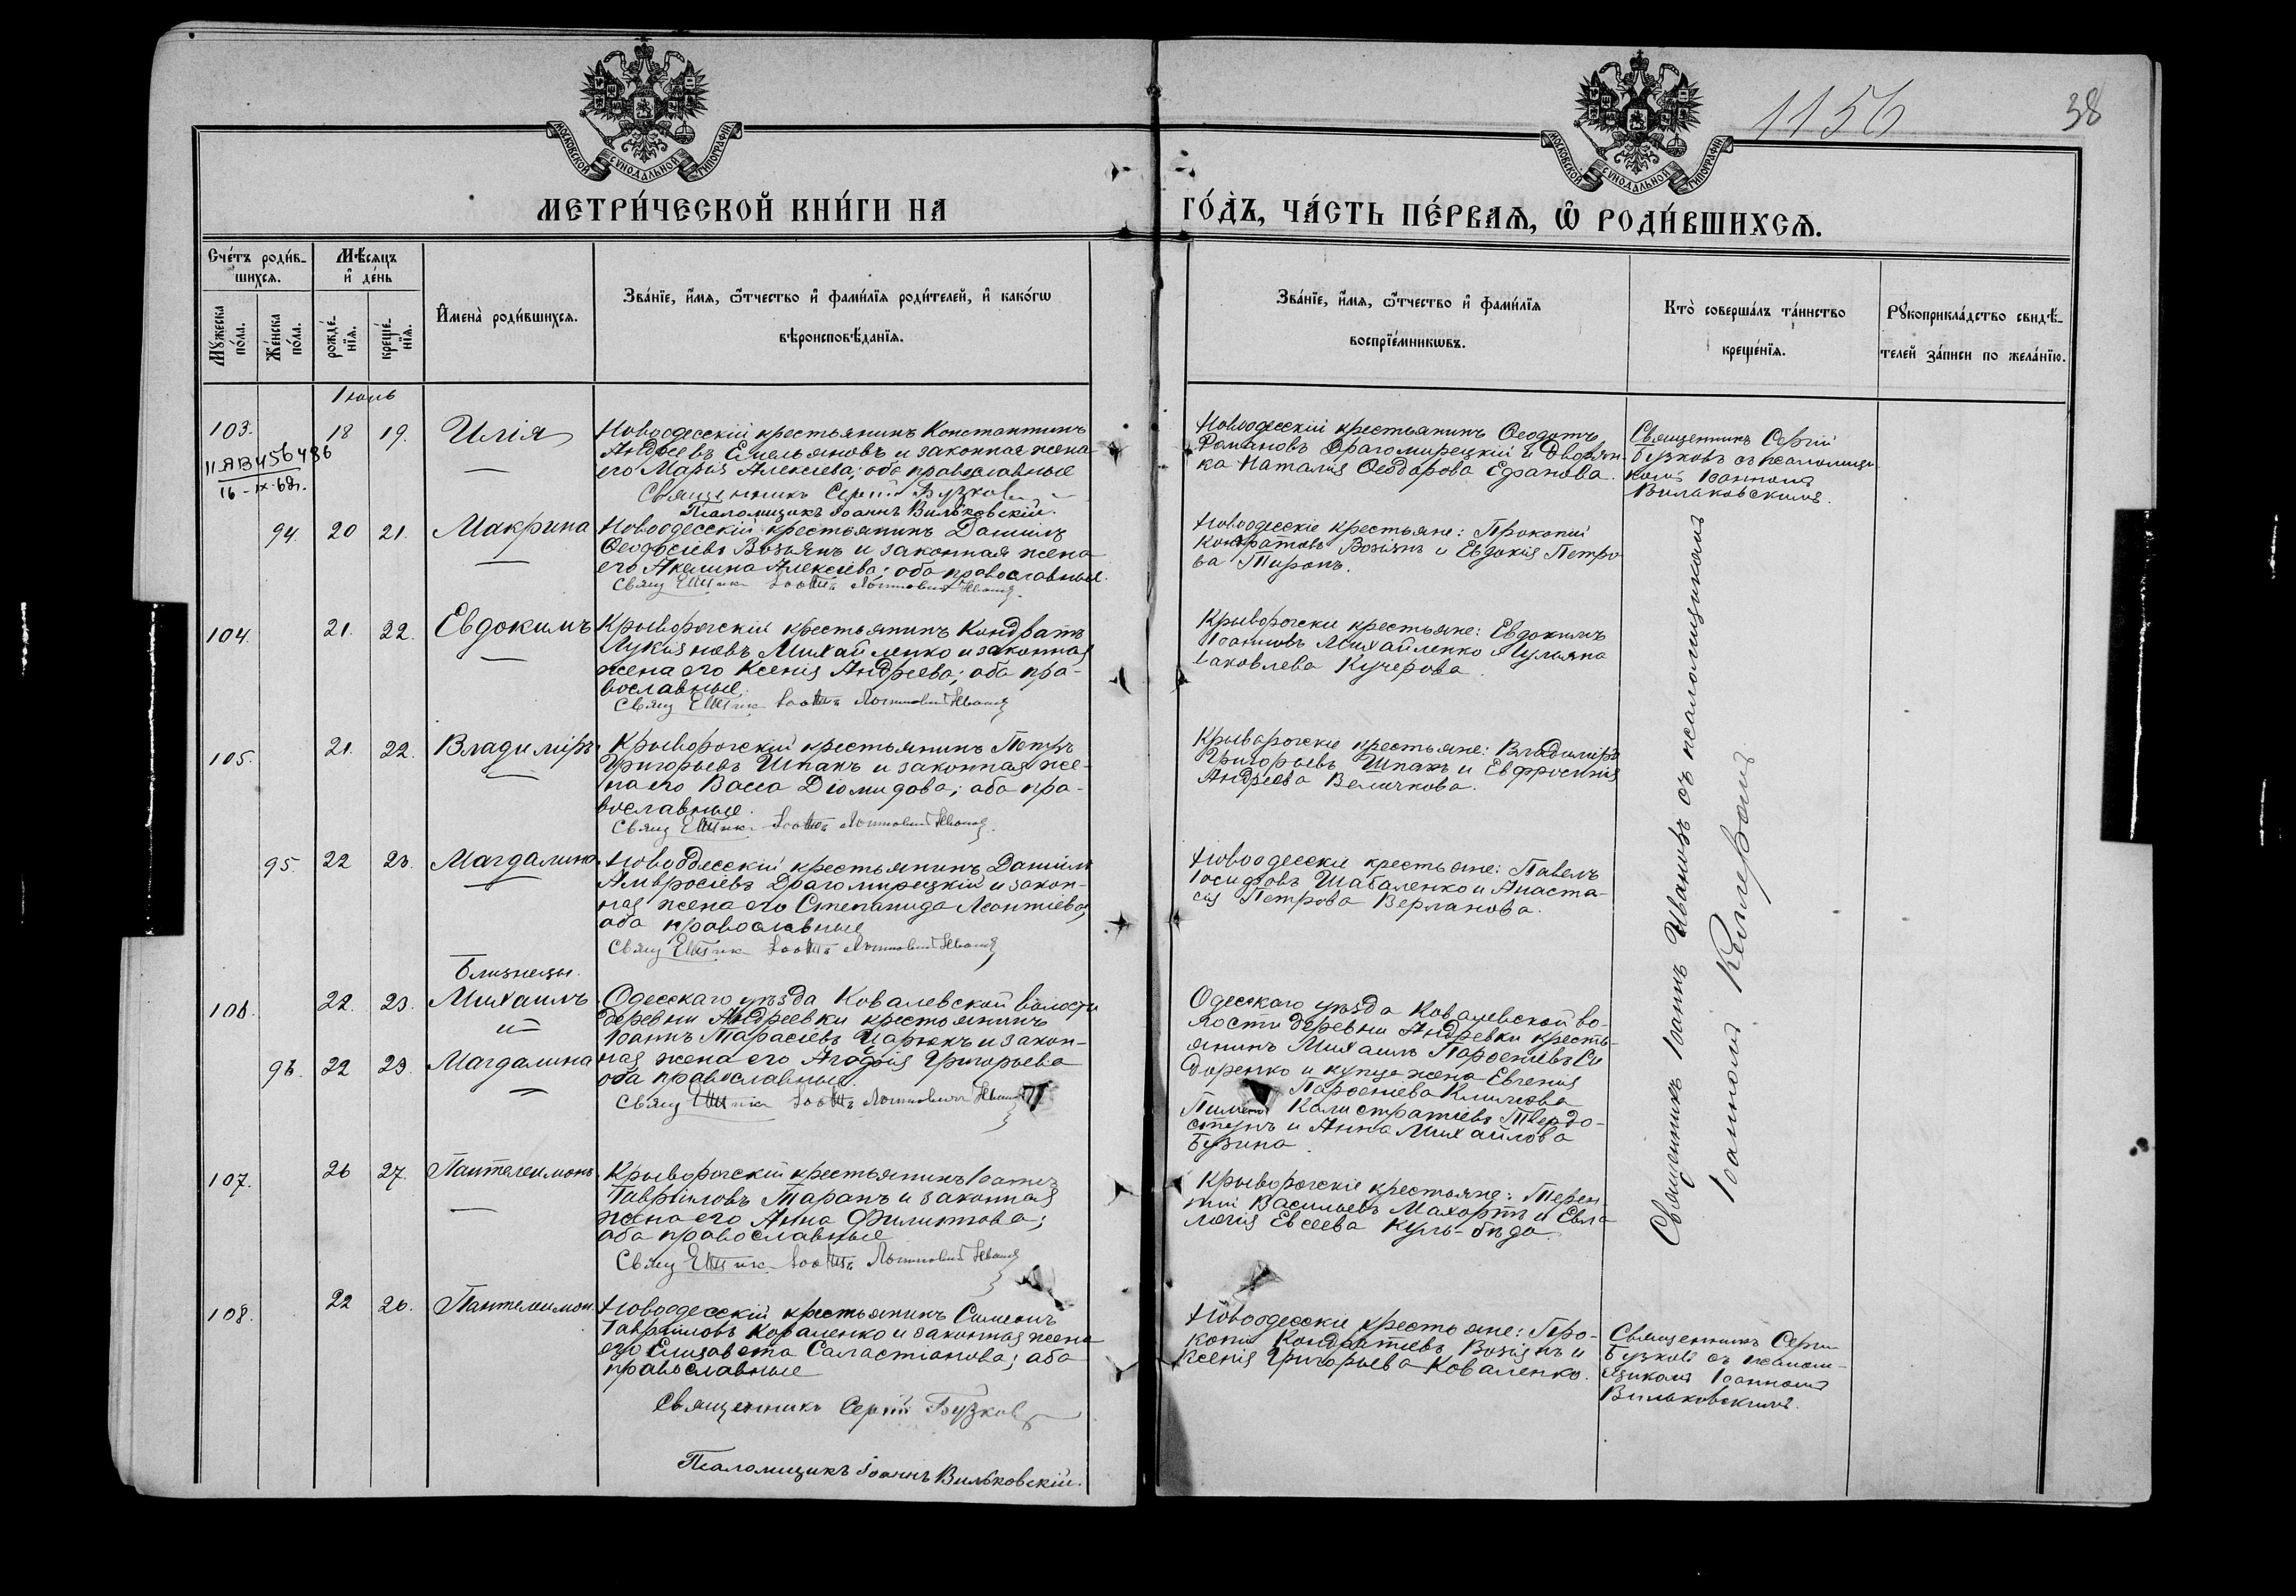 1156
38
МОСКОВСКОЙ СУНОДАЛЬНОЙ ТИПОГРАФІИ.
МОСКОВСКОЙ СУНОДАЛЬНОЙ ТИПОГРАФІИ.
МЕТРИ́ЧЕСКОЙ КНИ́ГИ НА
ГО́ДЪ, ЧА́СТЬ ПЕ́РВАѦ, Ѡ РОДИ́ВШИХСѦ.
Сче́тъ роди́в-
шихсѧ.
Мꙋжеска по́ла.
Же́нска по́ла.
Мѣ́сѧцъ
и҆ де́нь
рожде́-нїѧ.
креще́-нїѧ.
И҆мена̀ роди́вшихсѧ.
Зва́нїе, и҆́мѧ, ѻ҆́тчество и҆ фами́лїѧ роди́телей, и҆ како́гѡ
вѣроисповѣ́данїѧ.
Зва́нїе, и҆́мѧ, ѻ҆́тчество и҆ фами́лїѧ
воспрїе́мникѡвъ.
Кто̀ соверша́лъ та́инство
креще́нїѧ.
Рꙋкоприкла́дство свидѣ́-
телей за́писи по жела́нїю.
Іюль
103.
II ЯВ 456486
16-IX-62г.
18 19. Илія
Новоодесскій крестьянинъ Константинъ
Андреевъ Емельяновъ и законная жена
его Марія Алексіева; оба православные
Священникъ Сергій Бузковъ
Псаломщикъ Іоаннъ Вильковскій.
Новоодесскій крестьянинъ Ѳеодотъ
Романовъ Драгомирецкій и Дворян-
ка Наталія Ѳеодорова Ефанова.
Священникъ Сергій
Бузковъ съ псаломщи-
комъ Іоанномъ
Вильковскимъ.
94. 20 21. Макрина
Новоодесскій крестьянинъ Даніилъ
Ѳеодосіевъ Возіянъ и законная жена
его Акилина Алексіева; оба православные.
Новоодесскіе крестьяне: Прокопій
Кондратовъ Возіянъ и Евдокія Петро-
ва Тиронъ.
104. 21. 22. Евдокимъ
Криворогскій крестьянинъ Кондратъ
Лукіяновъ Михайленко и законная
жена его Ксенія Андреева; оба пра-
вославные.
Криворогскіе крестьяне: Евдокимъ
Іоанновъ Михайленко и Ульяна
Іаковлева Кучерова.
105. 21. 22. Владиміръ.
Криворогскій крестьянинъ Петръ
Григорьевъ Шпакъ и законная же-
на его Васса Діомидова; оба пра-
вославные.
Криворогскіе крестьяне: Владиміръ
Григорьевъ Шпакъ и Евфросинія
Андреева Величкова.
95. 22 23. Магдалина
Новоодесскій крестьянинъ Даніилъ
Амвросіевъ Драгомирецкій и закон-
ная жена его Степанида Леонтіева;
оба православные
Новоодесскіе крестьяне: Павелъ
Іосифовъ Шабаленко и Анаста-
сія Петрова Верланова.
Близнецы.
106. 22. 23. Михаилъ
и
96. 22 23. Магдалина
Одесскаго уѣзда Ковалевской волости
деревни Андреевки крестьянинъ
Іоаннъ Тарасіевъ Царюкъ и закон-
ная жена его Агафія Григорьева
оба православные.
Одесскаго уѣзда Ковалевской во-
лости деревни Андреевки кресть-
янинъ Михаилъ Парѳеніевъ Си-
доренко и купца жена Евгенія
Парѳеніева Климова
Пименъ Калистратіевъ Твердо-
ступъ и Анна Михайлова
Бузина.
107. 26 27. Пантелеимонъ.
Криворогскій крестьянинъ Іоаннъ
Гавриловъ Таранъ и законная
жена его Анна Филиппова;
оба православные
Криворогскіе крестьяне: Терен-
тій Васильевъ Махортъ и Евла-
мпія Евсеева Куль-бѣда.
Священникъ Іоаннъ Ивановъ съ псаломщикомъ
Іоанномъ
108. 22 26. Пантелеимон.
Новоодесскій крестьянинъ Симеонъ
Гавриловъ Коваленко и законная жена
его Елизавета Саластіанова; оба
православные
Священникъ Сергій Бузковъ
Псаломщикъ Іоаннъ Вильковскій.
Новоодесскіе крестьяне: Про-
копій Кондратіевъ Возіянъ и
Ксенія Григорьева Коваленко.
Священникъ Сергій
Бузковъ съ псалом-
щикомъ Іоанномъ
Вильковскимъ.